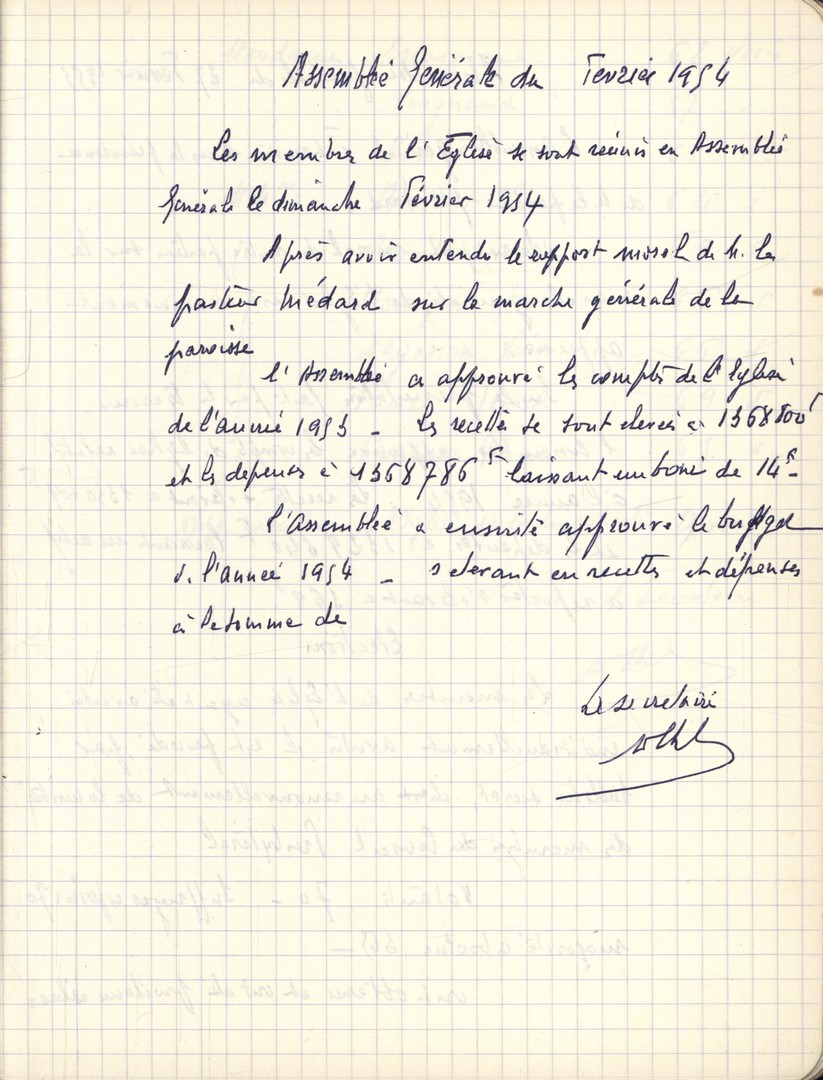 Assemblée Générale du Fevrier 1954
Les membres de l'Église se sont réunis en Assemblée
Générale le dimanche Février 1954
Après avoir entendu le rapport moral de M. le
pasteur Médard sur la marche générale de la
paroisse
l'Assemblée a approuvé les comptes de l'Eglise
de l'année 1953 - Les recettes se sont elevées à 1368800F
et les depenses à 1368786F laissant un boni de 14F -
l'Assemblée a ensuite approuvé le budget
de l'année 1954 - s'elevant en recettes et dépenses
à la somme de
Le secretaire